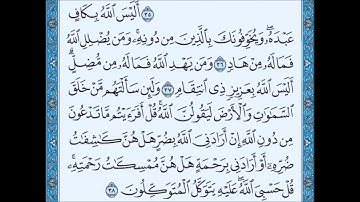 ۝٣٥ أَلَيْسَ ٱللَّهُ بِكَافٍ
عَبْدَهُۥ وَيُخَوِّفُونَكَ بِٱلَّذِينَ مِن دُونِهِۦ وَمَن يُضْلِلِ ٱللَّهُ
فَمَا لَهُۥ مِنْ هَادٍ ۝٣٦ وَمَن يَهْدِ ٱللَّهُ فَمَا لَهُۥ مِن مُّضِلٍّ
أَلَيْسَ ٱللَّهُ بِعَزِيزٍ ذِى ٱنتِقَامٍ ۝٣٧ وَلَئِن سَأَلْتَهُم مَّنْ خَلَقَ
ٱلسَّمَٰوَٰتِ وَٱلْأَرْضَ لَيَقُولُنَّ ٱللَّهُ قُلْ أَفَرَءَيْتُم مَّا تَدْعُونَ
مِن دُونِ ٱللَّهِ إِنْ أَرَادَنِىَ ٱللَّهُ بِضُرٍّ هَلْ هُنَّ كَٰشِفَٰتُ
ضُرِّهِۦٓ أَوْ أَرَادَنِى بِرَحْمَةٍ هَلْ هُنَّ مُمْسِكَٰتُ رَحْمَتِهِۦ
قُلْ حَسْبِىَ ٱللَّهُ عَلَيْهِ يَتَوَكَّلُ ٱلْمُتَوَكِّلُونَ ۝٣٨